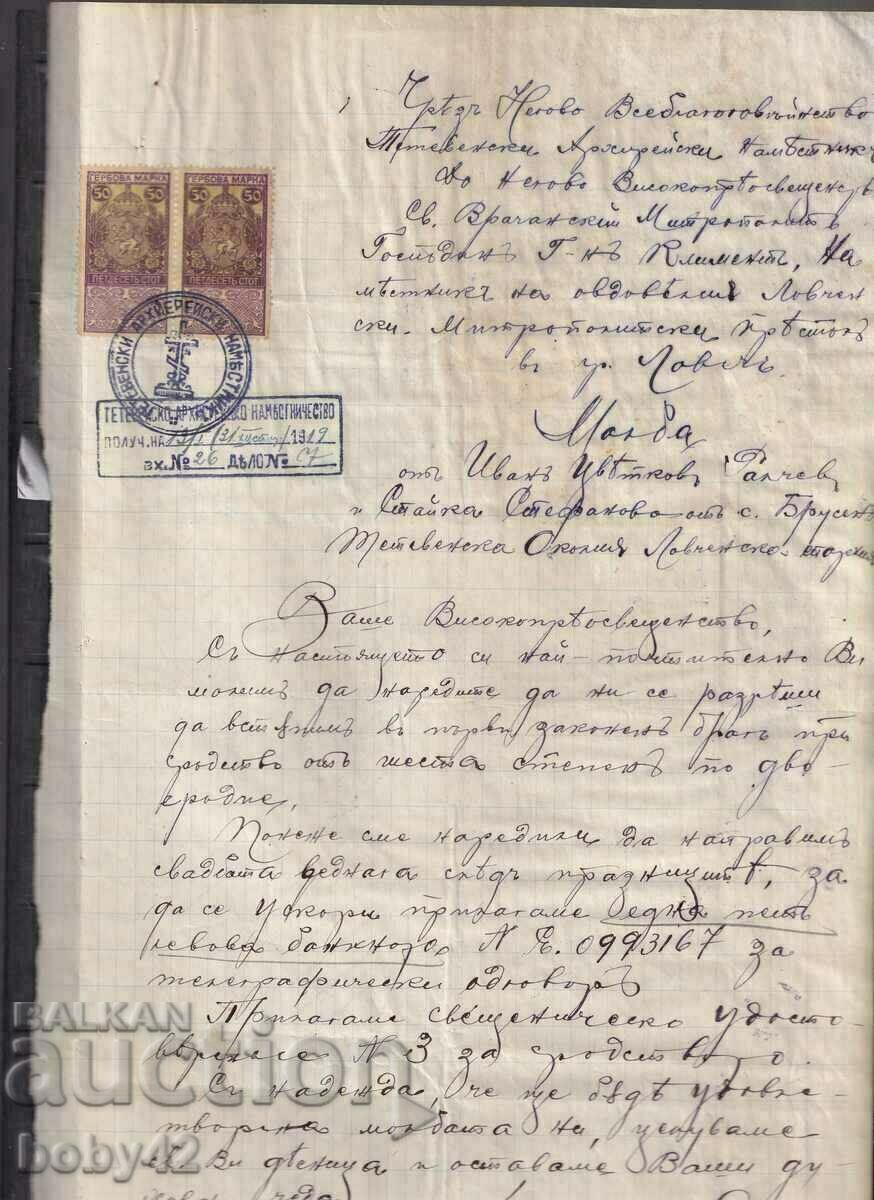 Чрѣзъ Негово Всеблагоговѣйнство
Тетевенски Архирейски Намѣстникъ
До Негово Високопрѣосвещенство
Св. Врачанский Митрополитъ
Господинъ Г-нъ Климентъ, На
мѣстникъ на овдовѣлия Ловчен
ски Митрополитски прѣстолъ
въ гр. Ловечъ
ГЕРБОВА МАРКА ГЕРБОВА МАРКА
50 50 50 50
ПЕТДЕСЕТЬ СТОТ ПЕТДЕСЕТЬ СТОТ
ТЕТЕВЕНСКИ АРХИЕРЕЙСКИ НАМѢСТНИКЪ
ТЕТЕВЕНСКО АРХИЕРЕЙСКО НАМѢСТНИЧЕСТВО
ПОЛУЧ. НА 1919
ВХ. № 26 ДѢЛО № 7
Молба
отъ Иванъ Цвѣтковъ Ранчевъ
и Стайка Стефанова отъ с. Брусенъ
Тетевенска Околия Ловченска епархия
Ваше Високопрѣосвещенство,
Съ настоящето си най-почтително Ви
молимъ да наредите да ни се разрѣши
да встѫпимъ въ първи законенъ бракъ при
сродство отъ шеста степень по дво-
еродие.
Понеже сме наредили да направимъ
свадбата веднага слѣдъ празницитѣ, за
да се ускори прилагаме една петь
левова банкнота N Е. 0993167 за
телеграфически отговоръ
Прилагаме свещеническо удосто-
вѣрение N 3 за сродството.
Съ надежда, че ще бѫде удовле-
творена молбата ни, целуваме
Ви дѣсница и оставаме Ваши ду
ховни чеда
BALKAN
auction
boby42